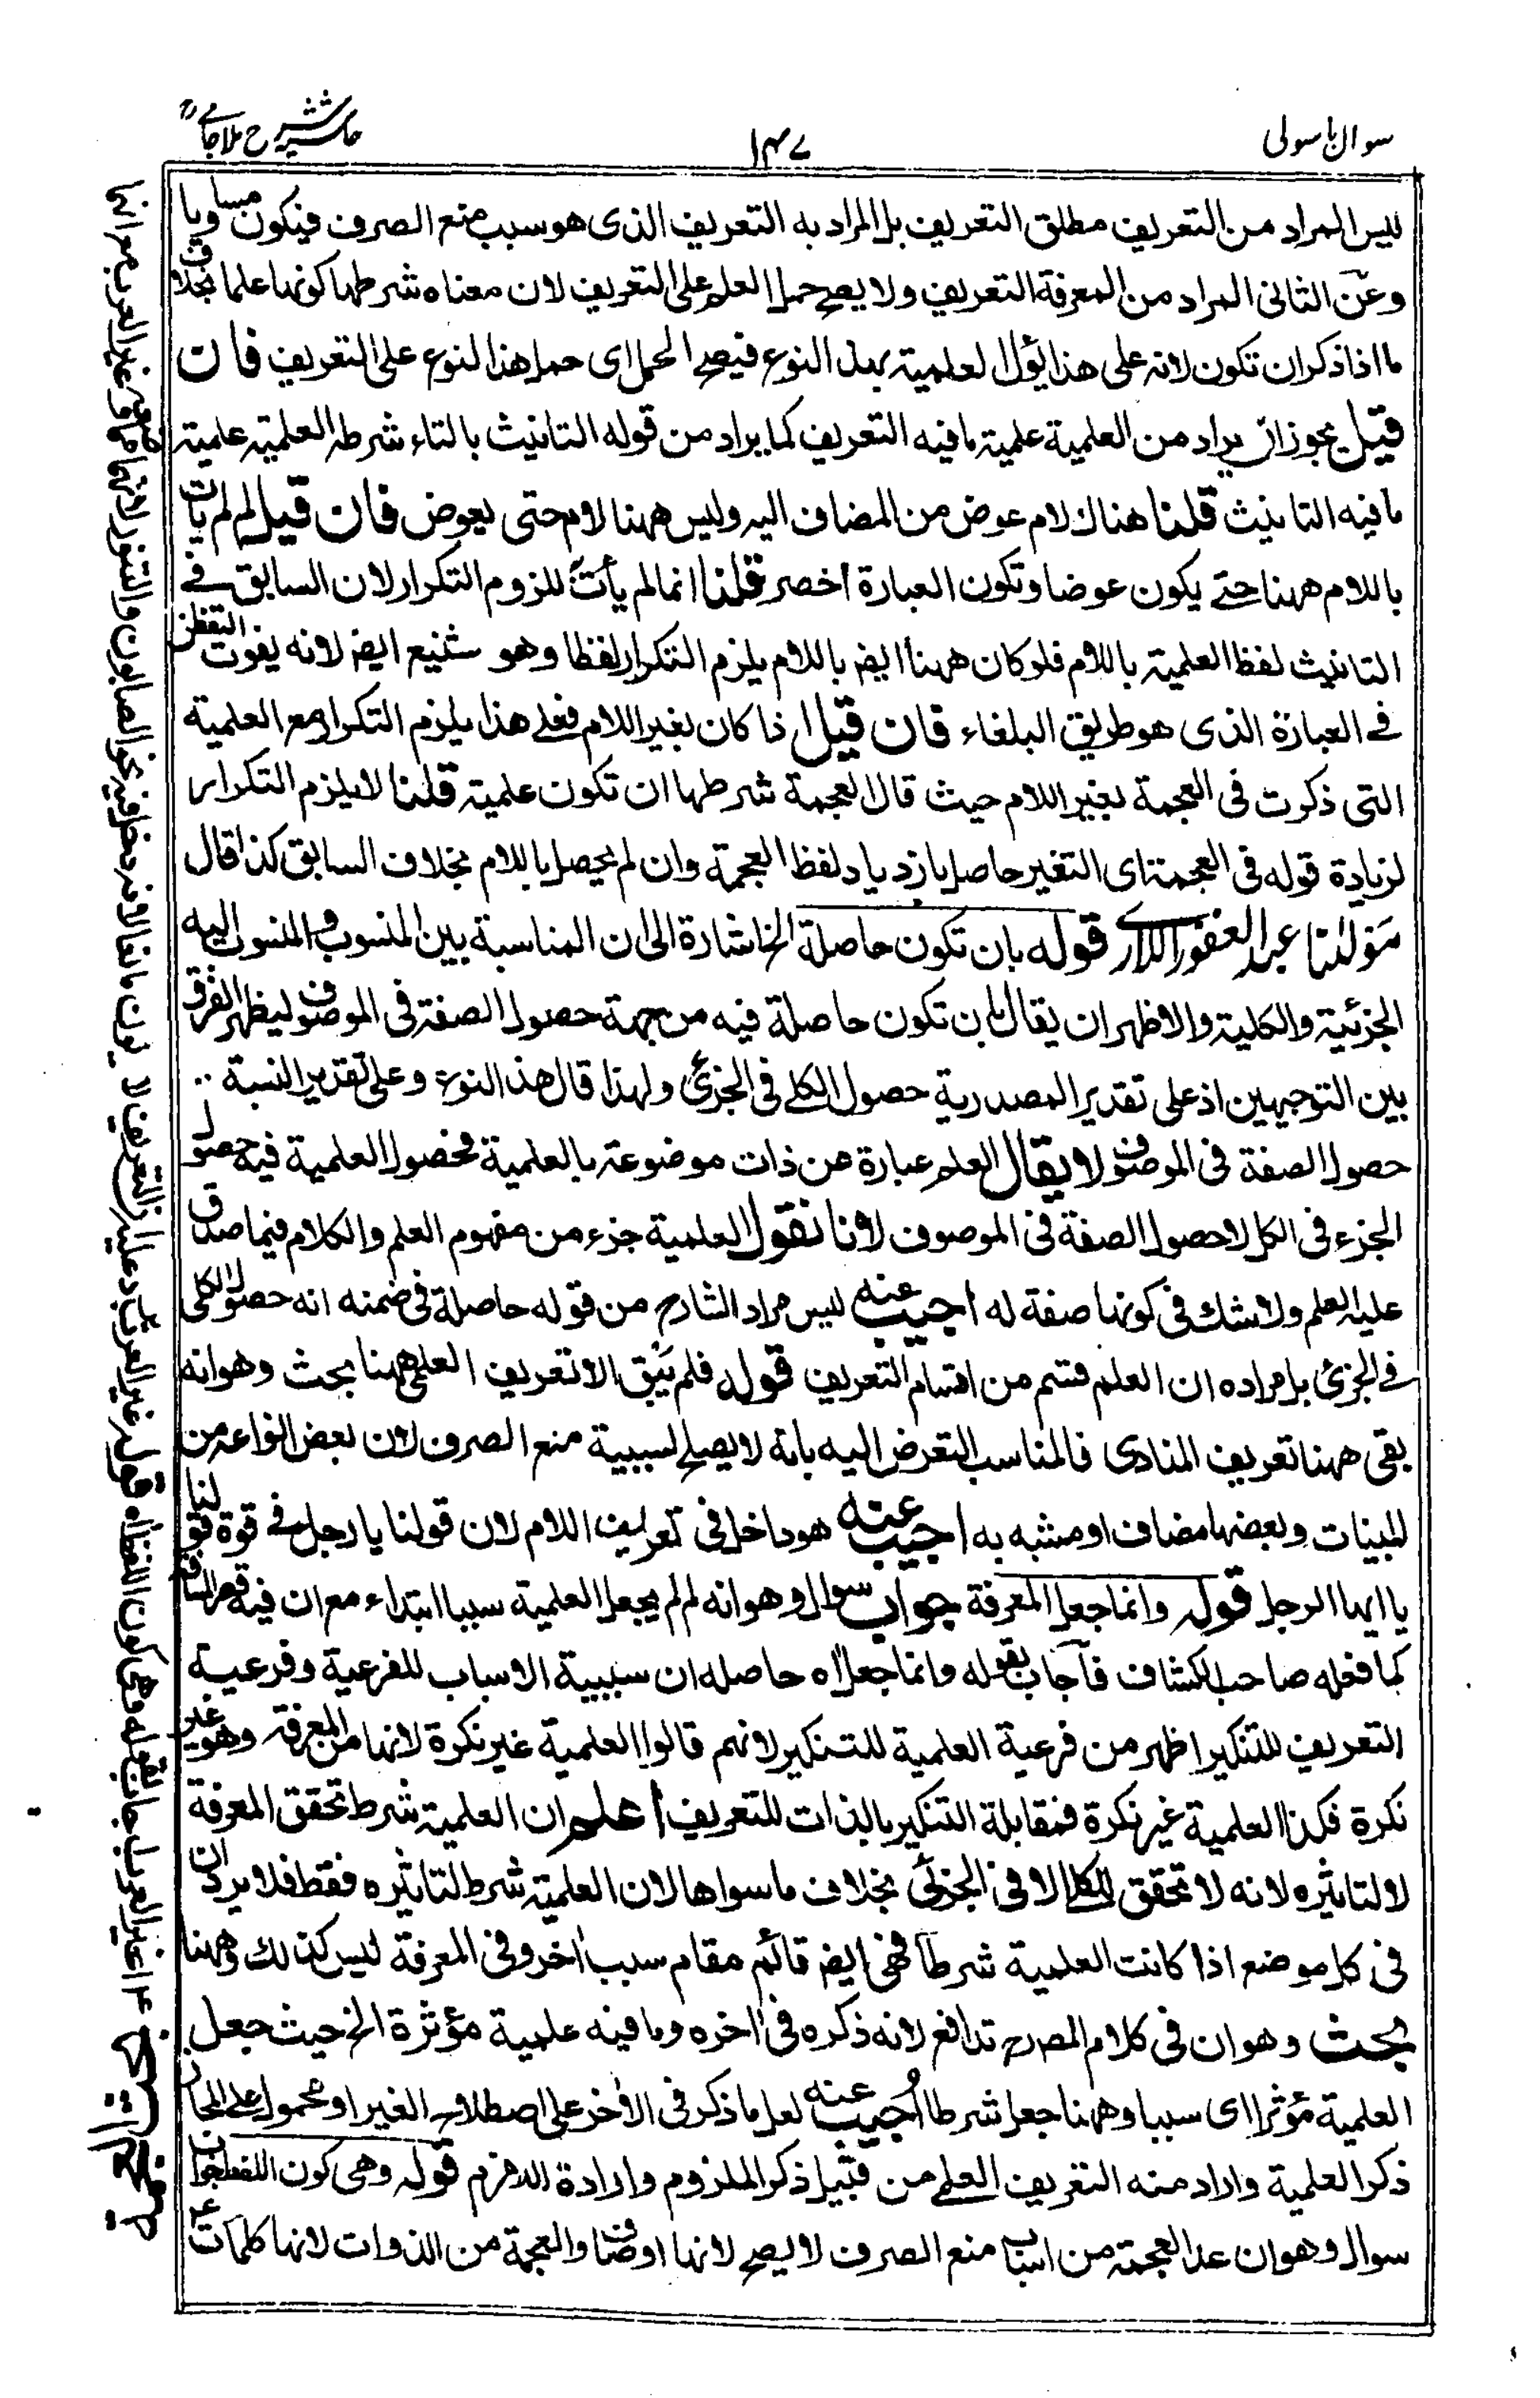 سوال باسولی
۱۴۷
حاشیه شرح ملاجامی
ليس المراد من التعريف مطلق التعريف بل المراد به التعريف الذى هو سبب منع الصرف فيكون مساويا
وعن الثانى المراد من المعرفة التعريف ولا يصح حمل العلم على التعريف لان معناه شرطها كونها علما بخلاف
ما اذا ذكر ان تكون لانه على هذا يؤل العلمية بهذا النوع فيصح الحمل اى حمل هذا النوع على التعريف فان
قيل يجوز ان يراد من العلمية علمية ما فيه التعريف كما يراد من قوله التانيث بالتاء شرطه العلمية علمية
ما فيه التانيث قلنا هناك لام عوض من المضاف اليه وليس ههنا لام حتى يعوض فان قيل لم لم يات
باللام ههنا حتے يكون عوضا وتكون العبارة اخصر قلنا انما لم يأت للزوم التكرار لان السابق فے
التانيث لفظ العلمية باللام فلو كان ههنا ايضر باللام يلزم التكرار لفظا وهو شنيع ايضر لانه يفوت التفنن
فے العبارة الذى هو طريق البلغاء فان قيل اذا كان بغير اللام فعلے هذا يلزم التكرار مع العلمية
التى ذكرت فى العجمة بغير اللام حيث قال العجمة شرطها ان تكون علمية قلنا لا يلزم التكرار
لزيادة قوله فى العجمة اى التغير حاصل بازدياد لفظ العجمة وان لم يحصل باللام بخلاف السابق كذا قال
مولٰنا عبد الغفور اللارى قوله بان تكون حاصلة الخ اشارة الى ان المناسبة بين المنسوب والمنسوب اليه
الجزئية والكلية والاظهر ان يقال بان تكون حاصلة فيه من جهة حصول الصفة فى الموصوف ليظهر الفرق
بين التوجيهين اذ على تقدير المصدرية حصول الكلے فى الجزئ ولهذا قال هذا النوع وعلى تقدير النسبة
حصول الصفة فى الموصوف لا يقال العلم عبارة عن ذات موضوعة بالعلمية فحصول العلمية فيه حصول
الجزء فى الكل لا حصول الصفة فى الموصوف لانا نقول العلمية جزء من مفهوم العلم والكلام فيما صدق
عليه العلم ولا شك فى كونها صفة له اجيب عنه ليس مراد الشارح من قوله حاصلة فى ضمنه انه حصول الكلى
فے الجزئ بل مراده ان العلم قسم من اقسام التعريف قوله فلم يبق الا تعريف العلمى ههنا بحث وهو انه
بقى ههنا تعريف المنادى فالمناسب التعرض اليه بانه لا يصلح لسببية منع الصرف لان بعض انواعه من
المبينات وبعضها مضاف او مشبه به اجيب عنه هو داخل فى تعريف اللام لان قولنا يا رجل فے قوة قولنا
يا ايها الرجل قوله وانما جعل المعرفة جواب سوال وهو انه لم لم يجعل العلمية سببا ابتداء مع ان فيه قصر المسافة
كما فعله صاحب الكشاف فاجاب بقوله وانما جعل اه حاصله ان سببية الاسباب للفرعية وفرعية
التعريف للتنكير اظهر من فرعية العلمية للتنكير لانهم قالوا العلمية غير نكرة لانها من المعرفة وهو غير
نكرة فكذا العلمية غير نكرة فمقابلة التنكير بالذات للتعريف اعلم ان العلمية شرط تحقق المعرفة
لا لتاثيره لانه لا تحقق للكل الا فى الجزئى بخلاف ما سواها لان العلمية شرط لتاثيره فقط فلا يرد ان
فى كل موضع اذا كانت العلمية شرطا فهى ايضر قائم مقام سبب اخر وفى المعرفة ليس كذلك وههنا
بحث وهو ان فى كلام المصرح تدافع لانه ذكره فى اخره وما فيه علمية مؤثرة الخ حيث جعل
العلمية مؤثرا اى سببا وههنا جعل شرطا اجيب عنه لعل ما ذكر فى الاخر على اصطلاح الغير او محمول على المجاز
ذكر العلمية واراد منه التعريف العلمے من قبيل ذكر الملزوم وارادة اللازم قوله وهى كون اللفظ جواب
سوال وهو ان عد العجمة من اسباب منع الصرف لا يصح لانها اوصاف والعجمة من الذوات لانها كلمات